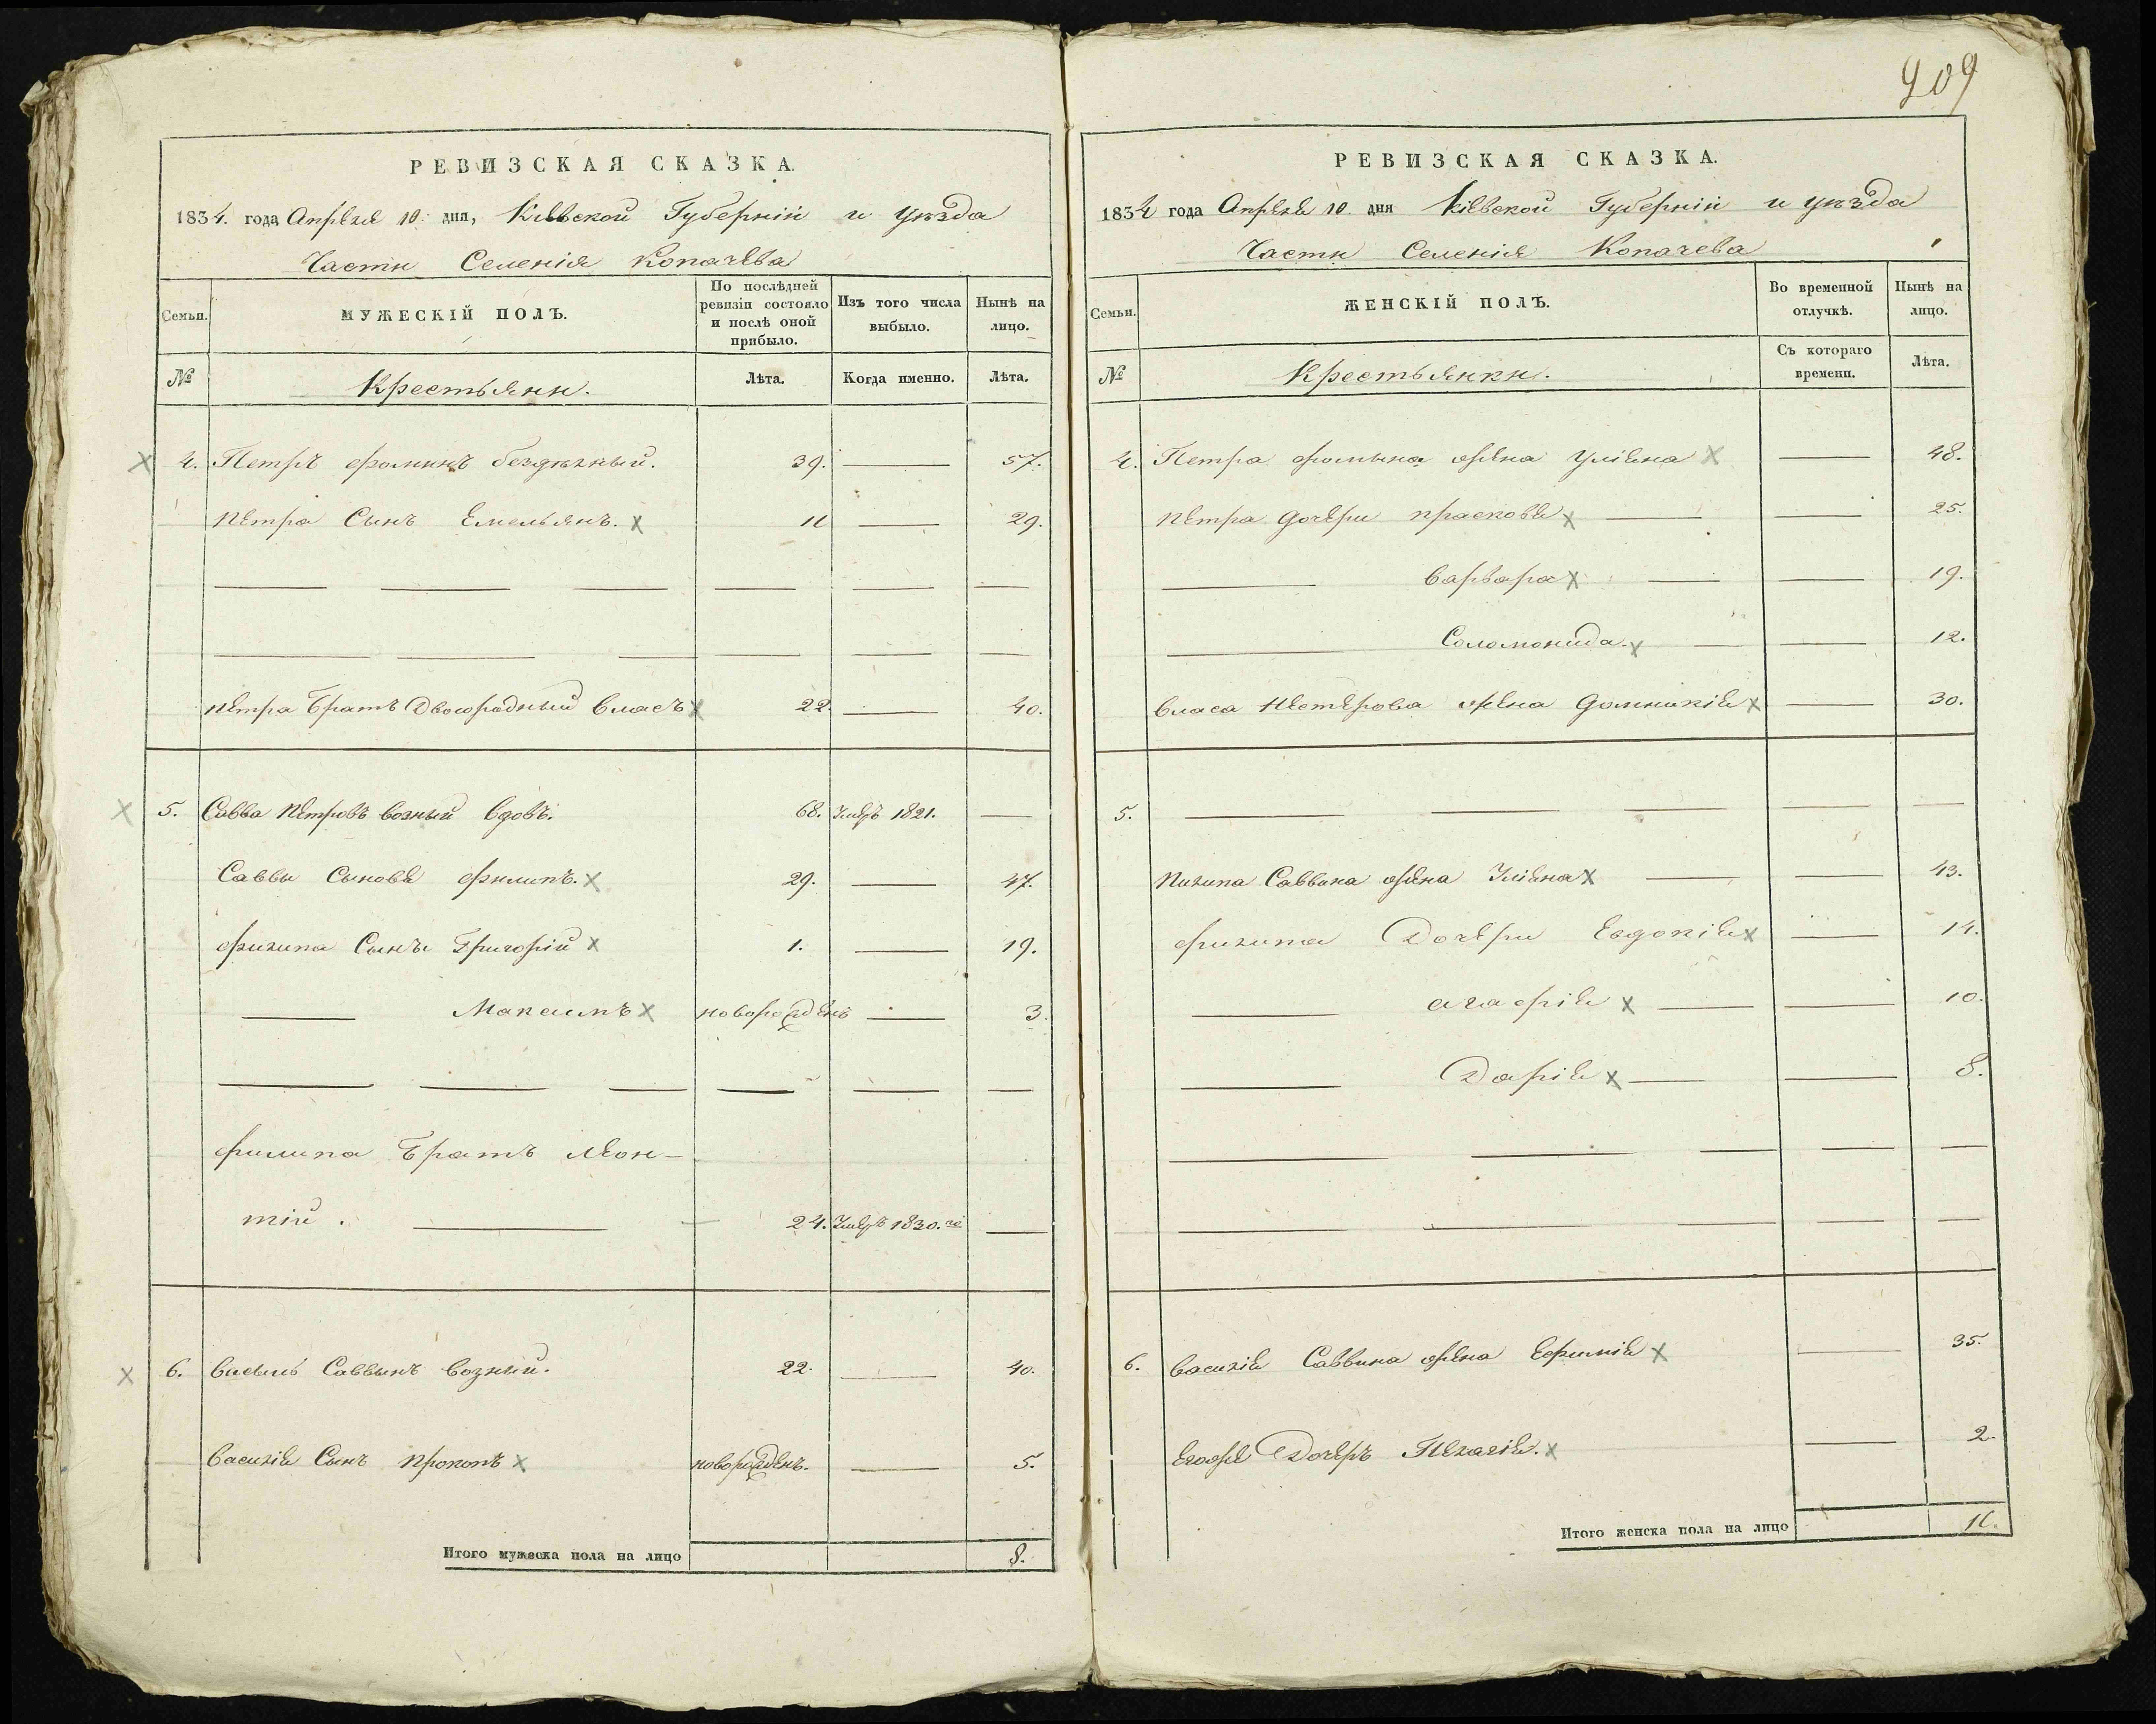 409
РЕВИЗСКАЯ СКАЗКА.
1834. года Апрѣля 10. дня, Кіевской Губерніи и уѣзда
Части Селенія Копачева
Семьи.
МУЖЕСКІЙ ПОЛЪ.
По послѣдней ревизіи состояло и послѣ оной прибыло.
Изъ того числа выбыло.
Нынѣ на лицо.
№
Крестьяни.
Лѣта.
Когда именно.
Лѣта.
4. Петръ Фоминъ 39. — 57.
Петра Сынъ Емельянъ. 11 — 29.
Петра Братъ Двоюродный Власъ 22. — 40.
5. Савва Петровъ Возный вдовъ. 68. Умеръ 1821. —
Саввы Сынове Филипъ. 29. — 47.
Филипа Сынъ Григорій 1. — 19.
— Максимъ новорожденъ — 3.
Филипа Братъ Леон-
тій. — 24. Умеръ 1830. —
6. Василь Саввинъ Возный. 22. — 40.
Василія Сынъ Прокопъ новорожденъ. — 5.
Итого мужеска пола на лицо 8.
РЕВИЗСКАЯ СКАЗКА.
1834 года Апрѣля 10. дня Кіевской Губерніи и уѣзда
Части Селенія Копачева
Семьи.
ЖЕНСКІЙ ПОЛЪ.
Во временной отлучкѣ.
Нынѣ на лицо.
№
Крестьянки.
Съ котораго времени.
Лѣта.
4. Петра Фомина жена Уліяна — 48.
Петра дочери Прасковія — — 25.
— Варвара — — 19.
— Соломонида. — — 12.
Власа Нестерова жена Домникія — 30.
5. — — — — —
Филипа Саввина жена Уліяна — — 43.
Филипа Дочери Евдокія — 14.
— Агафія — — 10.
— Дарія — — 8.
6. Василія Саввина жена Ефимія — 35.
Егоже Дочерь Пелагія. — 2.
Итого женска пола на лицо 11.